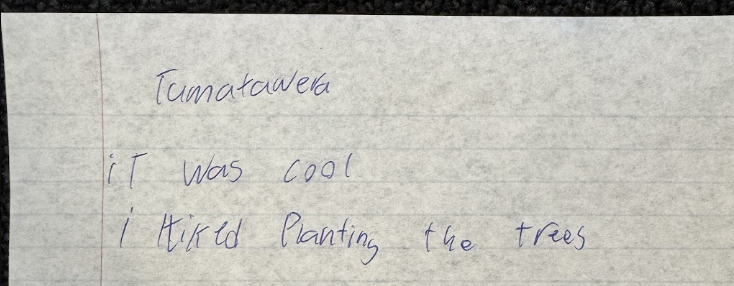 Tumatawera
iT was cool
i liked Planting the trees